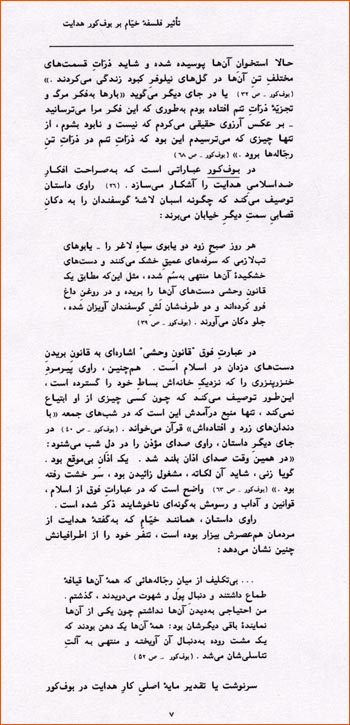 تأثیر فلسفهٔ خیّام بر بوف‌کور هدایت
حالا استخوان آن‌ها پوسیده شده و شاید ذرّاتِ قسمت‌های
مختلف تن آن‌ها در گل‌های نیلوفر کبود زندگی می‌کردند .»
(بوف‌کور ـ ص ۳۲) یا در جای دیگر می‌گوید «بارها به‌فکر مرگ و
تجزیهٔ ذرّاتِ تنم افتاده بودم به‌طوری که این فکر مرا می‌ترسانید
ـ بر عکس آرزوی حقیقی می‌کردم که نیست و نابود بشوم ، از
تنها چیزی که می‌ترسیدم این بود که ذرّاتِ تنم در ذرّاتِ تنِ
رجّاله‌ها برود .» (بوف‌کور ـ ص ۶۸)
در بوف‌کور عباراتی است که به‌صراحت افکار
ضداسلامی هدایت را آشکار می‌سازد . (۲۶) راوی داستان
توصیف می‌کند که چگونه اسبان لاشهٔ گوسفندان را به دکانِ
قصابیِ سمتِ دیگرِ خیابان می‌برند :
هر روز صبح زود دو یابوی سیاهِ لاغر را ـ یابوهای
تب‌لازمی که سرفه‌های عمیقِ خشک می‌کنند و دست‌های
خشکیدهٔ آن‌ها منتهی به‌سُم شده ، مثل این‌که مطابق یک
قانونِ وحشی دست‌های آن‌ها را بریده و در روغنِ داغ
فرو کرده‌اند و دو طرف‌شان لُشِ گوسفندان آویزان شده ،
جلو دکان می‌آورند . (بوف‌کور ـ ص ۳۹)
در عبارتِ فوق "قانونِ وحشی" اشاره‌ای به قانونِ بریدنِ
دست‌های دزدان در اسلام است . هم‌چنین ، راوی پیرمردِ
خنزرپنزری را که نزدیکِ خانه‌اش بساطِ خود را گسترده است ،
این‌طور توصیف می‌کند که چون کسی چیزی از او ابتیاع
نمی‌کند ، تنها منبع درآمدش این است که در شب‌های جمعه «با
دندان‌های زرد و افتاده‌اش» قرآن می‌خواند . (بوف‌کور ـ ص ۴۰) در
جای دیگرِ داستان ، راوی صدای مؤذن را در دل شب می‌شنود :
«در همین وقت صدای اذان بلند شد . یک اذانِ بی‌موقع بود .
گویا زنی ، شاید آن لکّاته ، مشغول زائیدن بود ، سر خشت رفته
بود .» (بوف‌کور ـ ص ۶۳) واضح است که در عباراتِ فوق از اسلام ،
قوانین و آداب و رسومش به‌گونه‌ای ناخوشایند ذکر شده است .
راوی داستان ، هماننـد خیّام که به‌گفتهٔ هدایت از
مردمان هم‌عصرش بیزار بوده است ، تنفّر خود را از اطرافیانش
چنین نشان می‌دهد :
. . . بی‌تکلیف از میان رجّاله‌هائی که همهٔ آن‌ها قیافهٔ
طماع داشتند و دنبال پول و شهوت می‌دویدند ، گذشتم .
من احتیاجی به‌دیدنِ آن‌ها نداشتم چون یکی از آن‌ها
نمایندهٔ باقی دیگرشان بود : همهٔ آن‌ها یک دهن بودند که
یک مشت روده به‌دنبال آن آویخته و منتهی به آلتِ
تناسلی‌شان می‌شد . (بوف‌کور ـ ص ۵۲)
سرنوشت یا تقدیر مایهٔ اصلیِ کارِ هدایت در بوف‌کور
۷